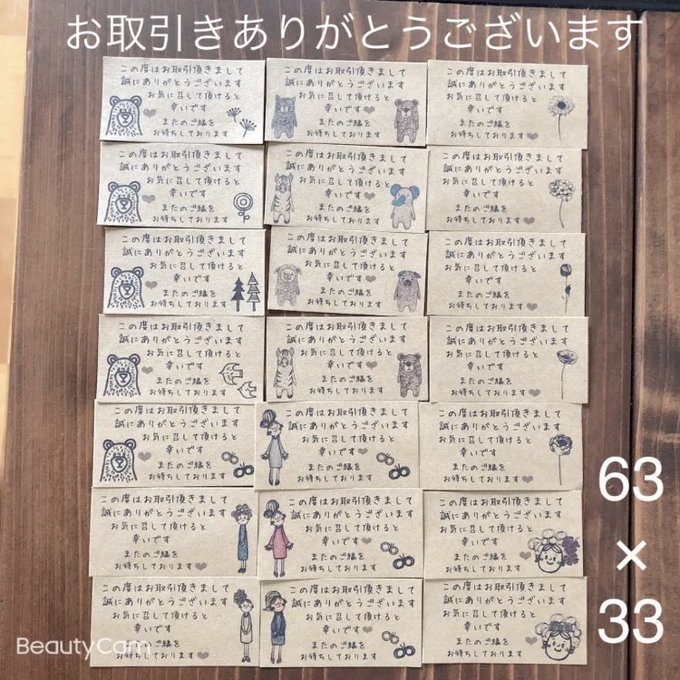 お取引きありがとうございます
この度はお取引頂きまして
誠にありがとうございます
お気に召して頂けると
幸いです
またのご縁を
お待ちしております
この度はお取引頂きまして
誠にありがとうございます
お気に召して頂けると
幸いです
またのご縁を
お待ちしております
この度はお取引頂きまして
誠にありがとうございます
お気に召して頂けると
幸いです
またのご縁を
お待ちしております
この度はお取引頂きまして
誠にありがとうございます
お気に召して頂けると
幸いです
またのご縁を
お待ちしております
この度はお取引頂きまして
誠にありがとうございます
お気に召して頂けると
幸いです
またのご縁を
お待ちしております
この度はお取引頂きまして
誠にありがとうございます
お気に召して頂けると
幸いです
またのご縁を
お待ちしております
この度はお取引頂きまして
誠にありがとうございます
お気に召して頂けると
幸いです
またのご縁を
お待ちしております
この度はお取引頂きまして
誠にありがとうございます
お気に召して頂けると
幸いです
またのご縁を
お待ちしております
この度はお取引頂きまして
誠にありがとうございます
お気に召して頂けると
幸いです
またのご縁を
お待ちしております
この度はお取引頂きまして
誠にありがとうございます
お気に召して頂けると
幸いです
またのご縁を
お待ちしております
この度はお取引頂きまして
誠にありがとうございます
お気に召して頂けると
幸いです
またのご縁を
お待ちしております
この度はお取引頂きまして
誠にありがとうございます
お気に召して頂けると
幸いです
またのご縁を
お待ちしております
この度はお取引頂きまして
誠にありがとうございます
お気に召して頂けると
幸いです
またのご縁を
お待ちしております
この度はお取引頂きまして
誠にありがとうございます
お気に召して頂けると
幸いです
またのご縁を
お待ちしております
この度はお取引頂きまして
誠にありがとうございます
お気に召して頂けると
幸いです
またのご縁を
お待ちしております
この度はお取引頂きまして
誠にありがとうございます
お気に召して頂けると
幸いです
またのご縁を
お待ちしております
この度はお取引頂きまして
誠にありがとうございます
お気に召して頂けると
幸いです
またのご縁を
お待ちしております
この度はお取引頂きまして
誠にありがとうございます
お気に召して頂けると
幸いです
またのご縁を
お待ちしております
この度はお取引頂きまして
誠にありがとうございます
お気に召して頂けると
幸いです
またのご縁を
お待ちしております
この度はお取引頂きまして
誠にありがとうございます
お気に召して頂けると
幸いです
またのご縁を
お待ちしております
この度はお取引頂きまして
誠にありがとうございます
お気に召して頂けると
幸いです
またのご縁を
お待ちしております
63
×
33
BeautyCam